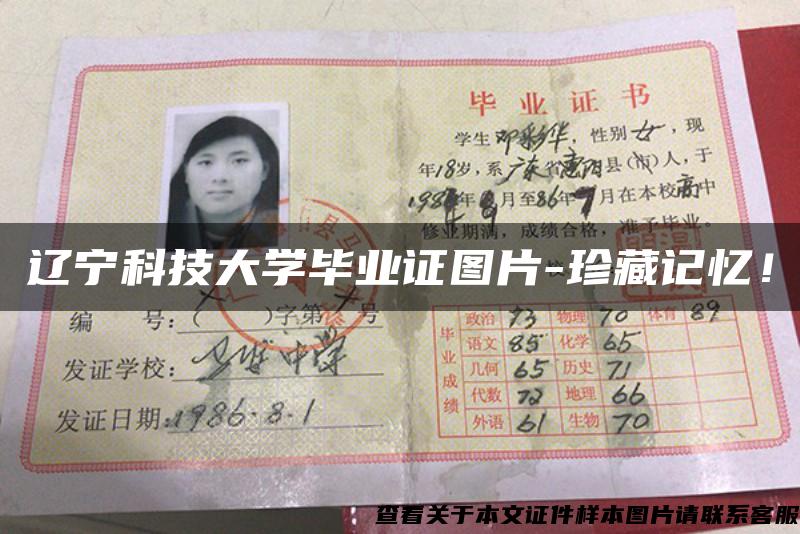 毕业证书
学生邓彩华，性别女，现
年18岁，系广东省惠阳县（市）人，于
年9月至86年7月在本校高中
修业期满，成绩合格，准予毕业。
辽宁科技大学毕业证图片-珍藏记忆！
编 号：（ ）字第 号
发证学校：中学
发证日期：1986.8.1
毕业成绩
政治 73 物理 70 体育 89
语文 85 化学 65
几何 65 历史 71
代数 72 地理 66
外语 61 生物 70
查看关于本文证件样本图片请联系客服